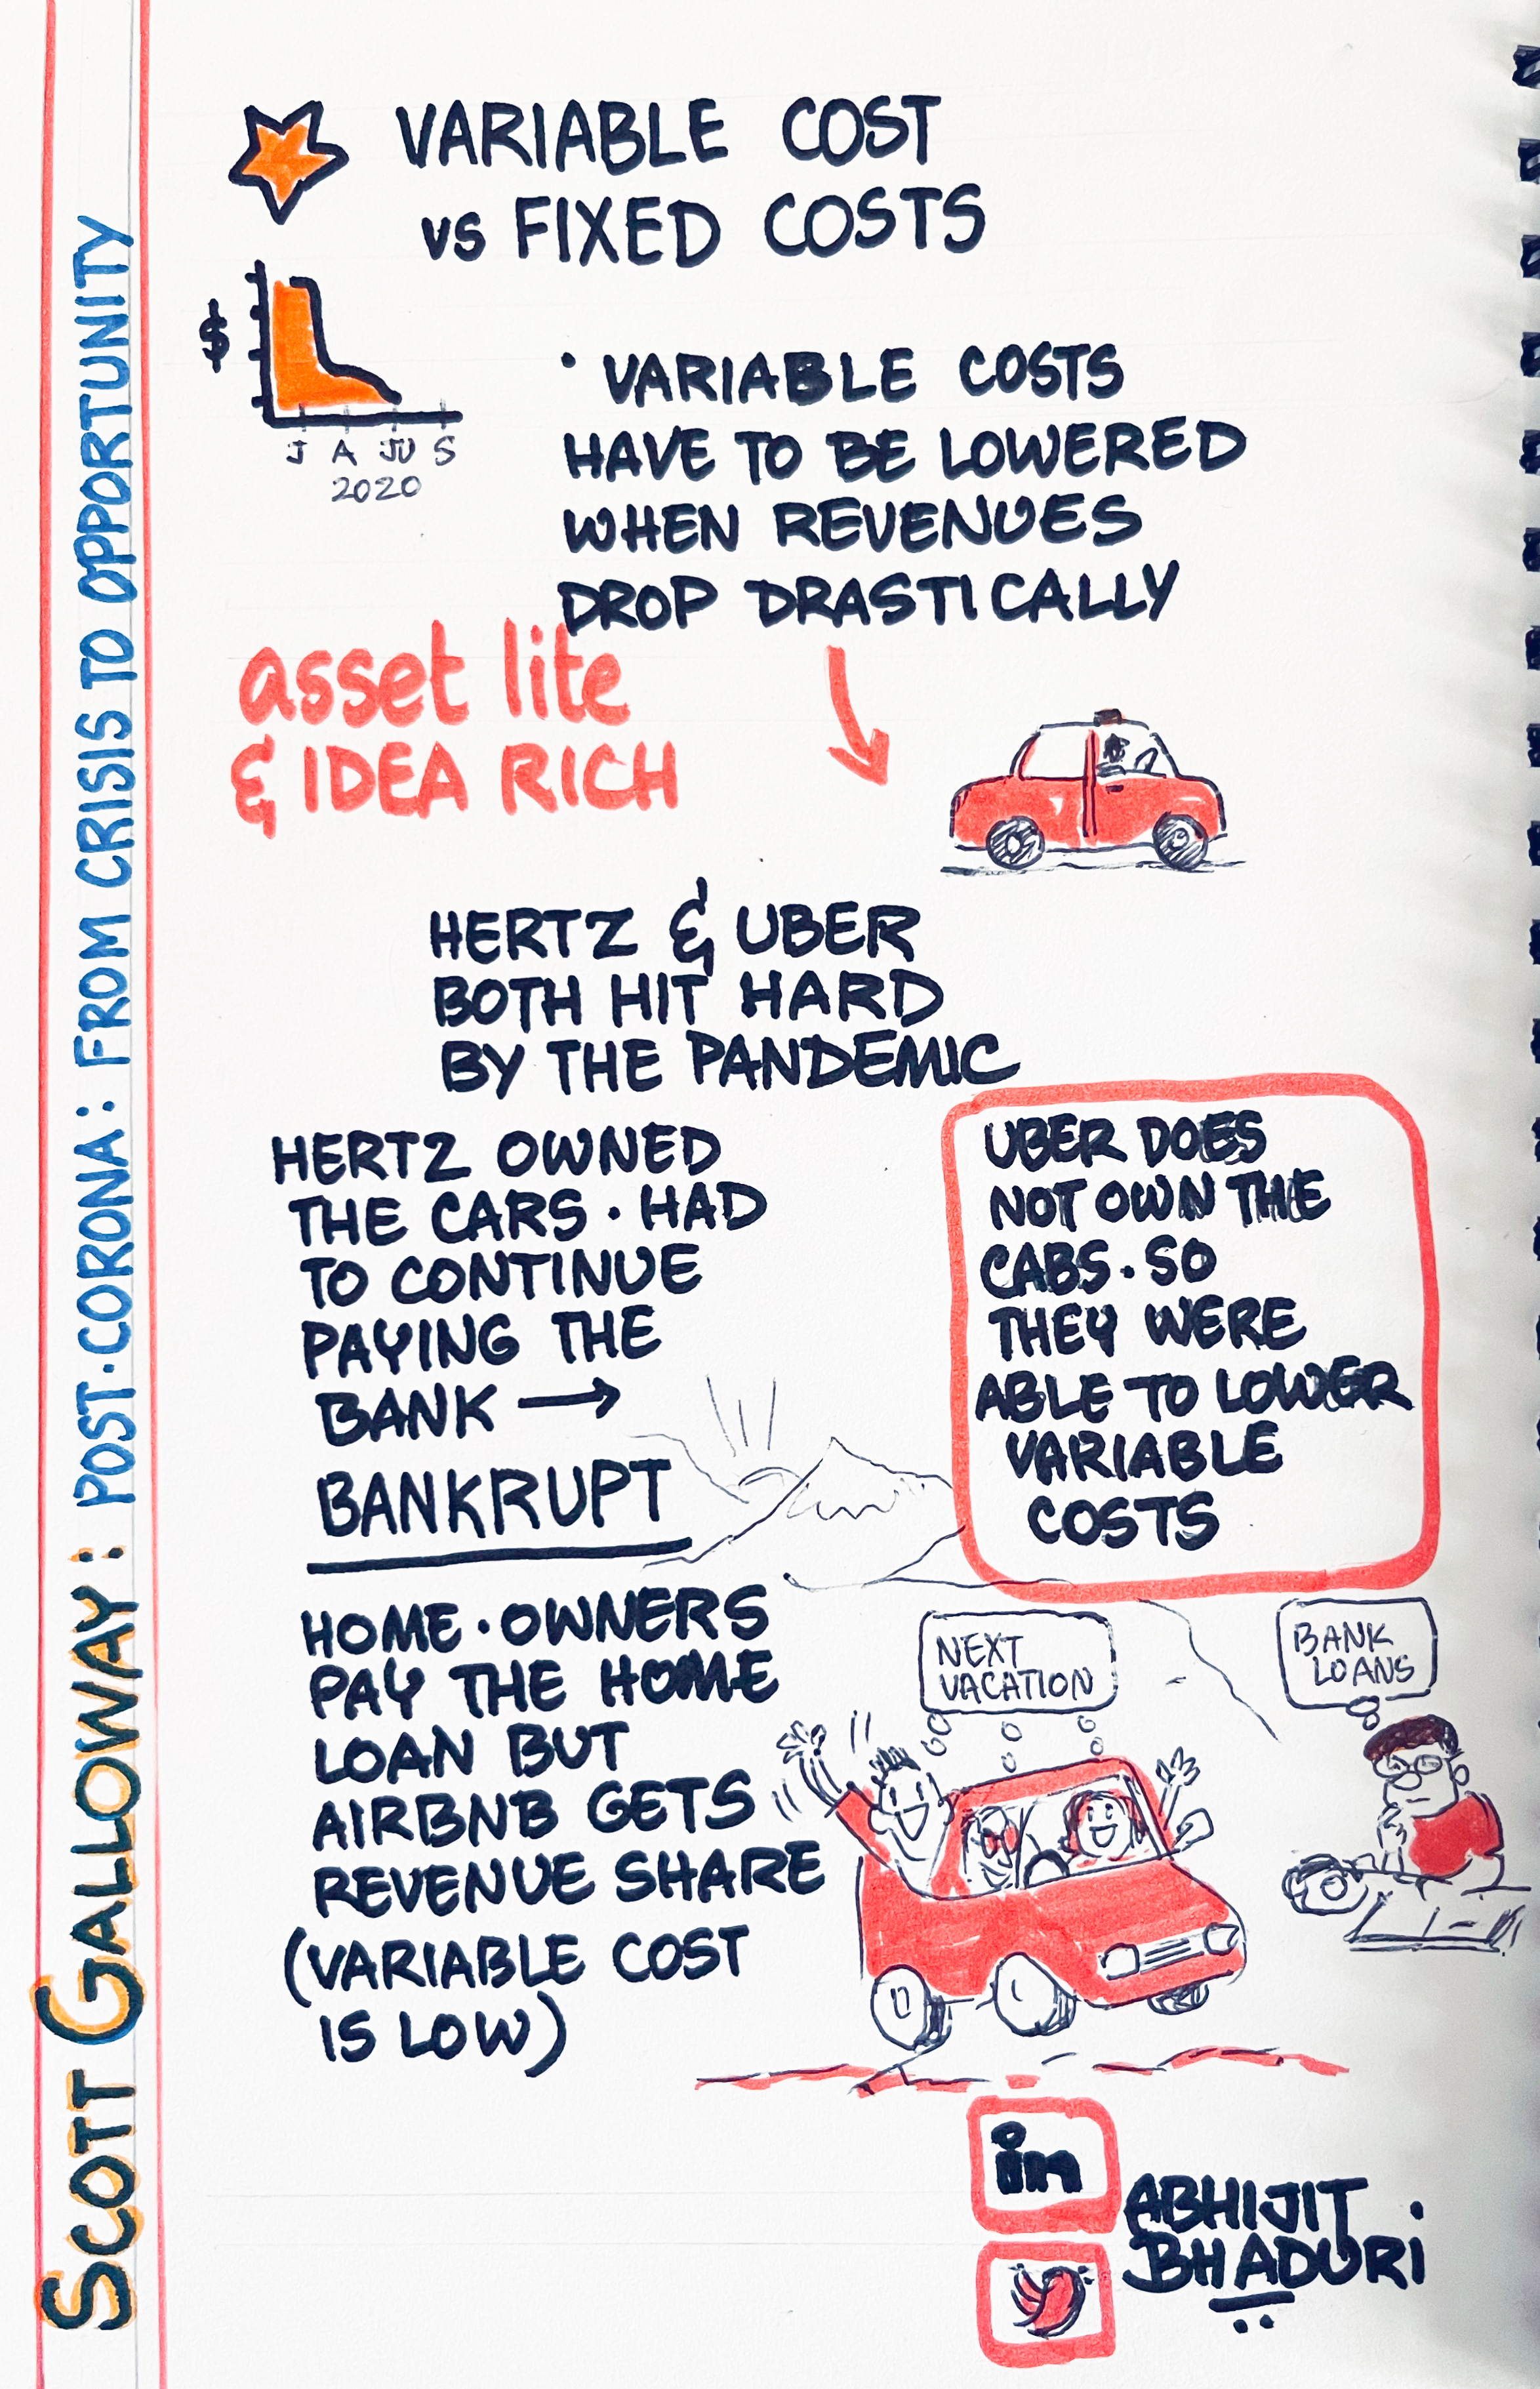 SCOTT GALLOWAY: POST·CORONA: FROM CRISIS TO OPPORTUNITY
VARIABLE COST
VS FIXED COSTS
$
J A JU S
2020
· VARIABLE COSTS
HAVE TO BE LOWERED
WHEN REVENUES
DROP DRASTICALLY
asset lite
& IDEA RICH
HERTZ & UBER
BOTH HIT HARD
BY THE PANDEMIC
HERTZ OWNED
THE CARS. HAD
TO CONTINUE
PAYING THE
BANK →
BANKRUPT
UBER DOES
NOT OWN THE
CABS. SO
THEY WERE
ABLE TO LOWER
VARIABLE
COSTS
HOME·OWNERS
PAY THE HOME
LOAN BUT
AIRBNB GETS
REVENUE SHARE
(VARIABLE COST
IS LOW)
NEXT
VACATION
BANK
LOANS
in
ABHIJIT
BHADURI